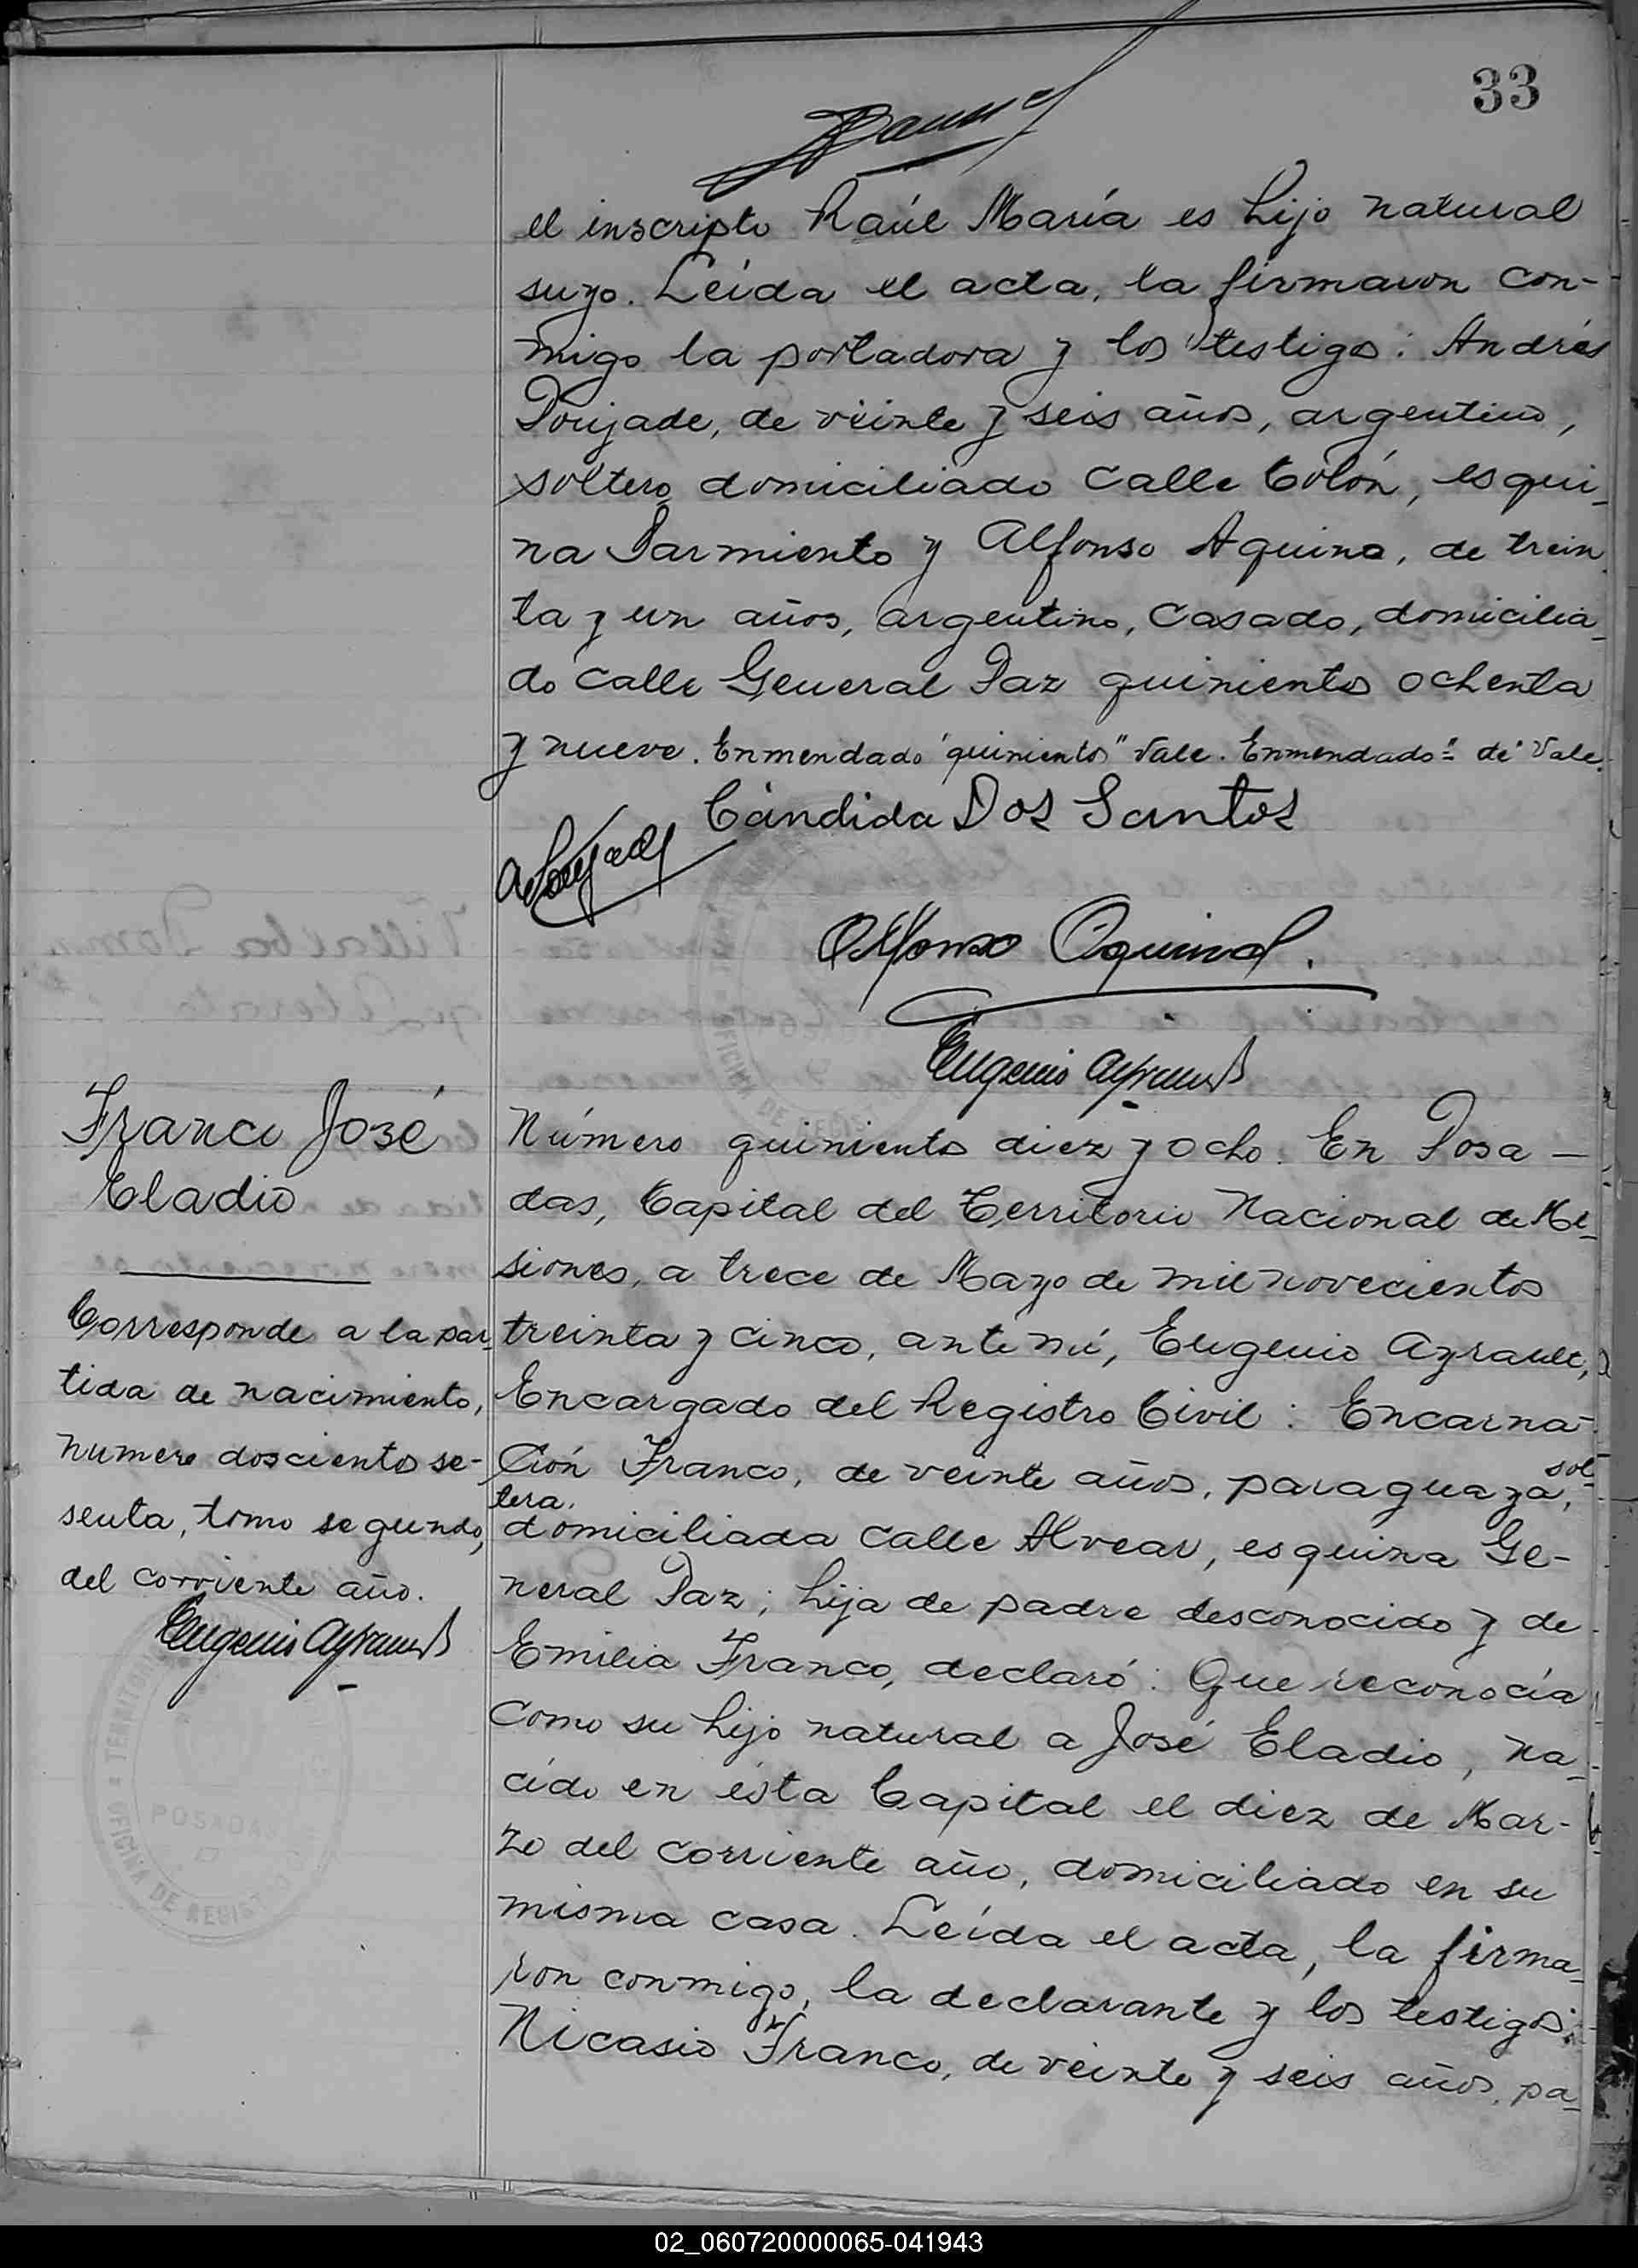 33
el inscripto Raúl María es hijo natural
suyo. Leída el acta, la firmaron con-
migo la portadora y los testigos: Andrés
Poujade, de veinte y seis años, argentino,
soltero, domiciliado calle Colón, esqui-
na Sarmiento y Alfonso Aquino, de trein
ta y un años, argentino, casado, domicilia-
do calle General Paz quinientos ochenta
y nueve. Enmendado "quinientos" Vale. Enmendado "de" Vale.
Cándida Dos Santos
Alfonso Aquino.
Eugenio Ayrault
Franco José
Eladio
Corresponde a la par-
tida de nacimiento,
numero doscientos se-
senta, tomo segundo,
del corriente año.
Eugenio Ayrault
TERRITORIO
POSADAS
OFICINA DE REGISTRO
Número quinientos diez y ocho. En Posa-
das, Capital del Territorio Nacional de Mi-
siones, a trece de Mayo de mil novecientos
treinta y cinco, ante mí, Eugenio Ayrault,
Encargado del Registro Civil: Encarna-
ción Franco, de veinte años, paraguaya, sol-
tera,
domiciliada calle Alvear, esquina Ge-
neral Paz; hija de padre desconocido y de
Emilia Franco, declaró: Que reconocía
como su hijo natural a José Eladio, na-
cido en ésta Capital el diez de Mar-
zo del corriente año, domiciliado en su
misma casa. Leída el acta, la firma-
ron conmigo, la declarante y los testigos:
Nicasio Franco, de veinte y seis años, pa-
02_060720000065-041943